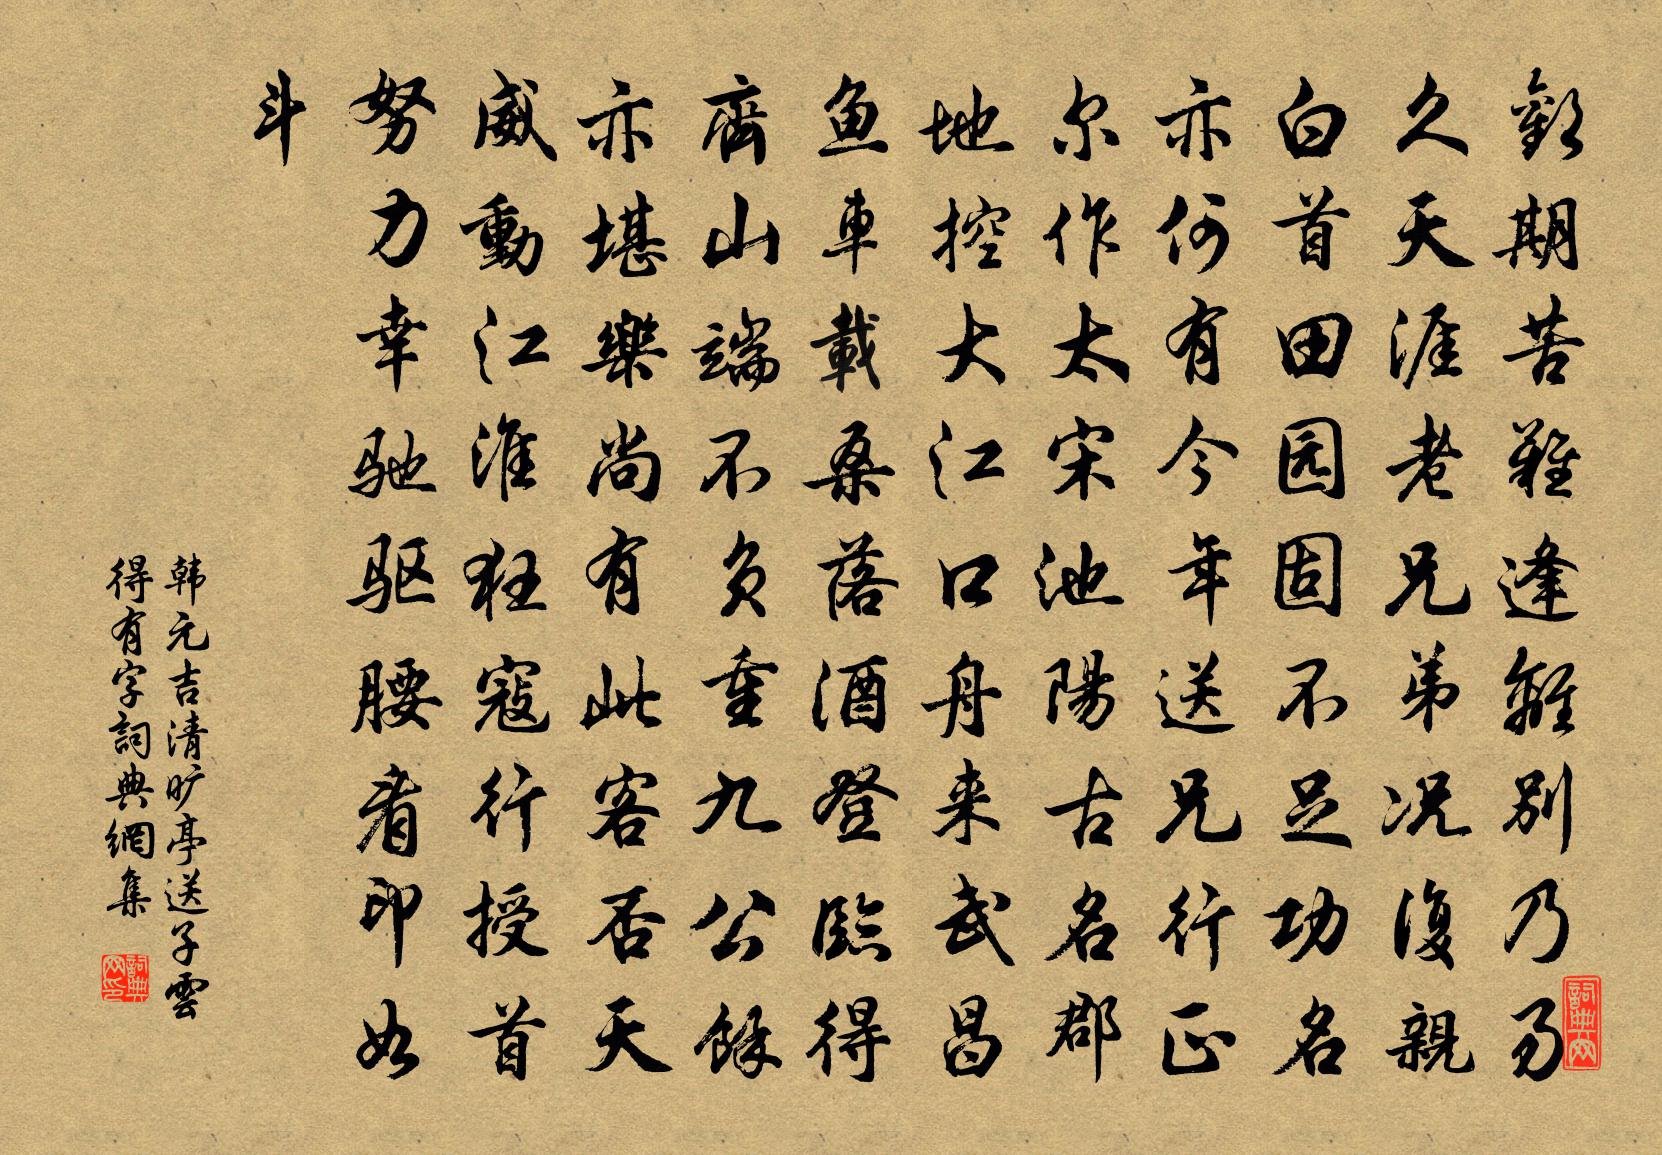 歡期苦難逢離別乃易
久天涯老兄弟况復親
白首田园固不足功名
亦何有今年送兄行正
尔作太宋池陽古名郡
地控大江口舟来武昌
鱼車載桑落酒登臨得
齊山端不负重九公餘
亦堪樂尚有此客否天
威動江淮狂寇行授首
努力幸驰驱腰看印如
斗
韩元吉清旷亭送子雲
得有字詞典網集
詞典网
詞典网印